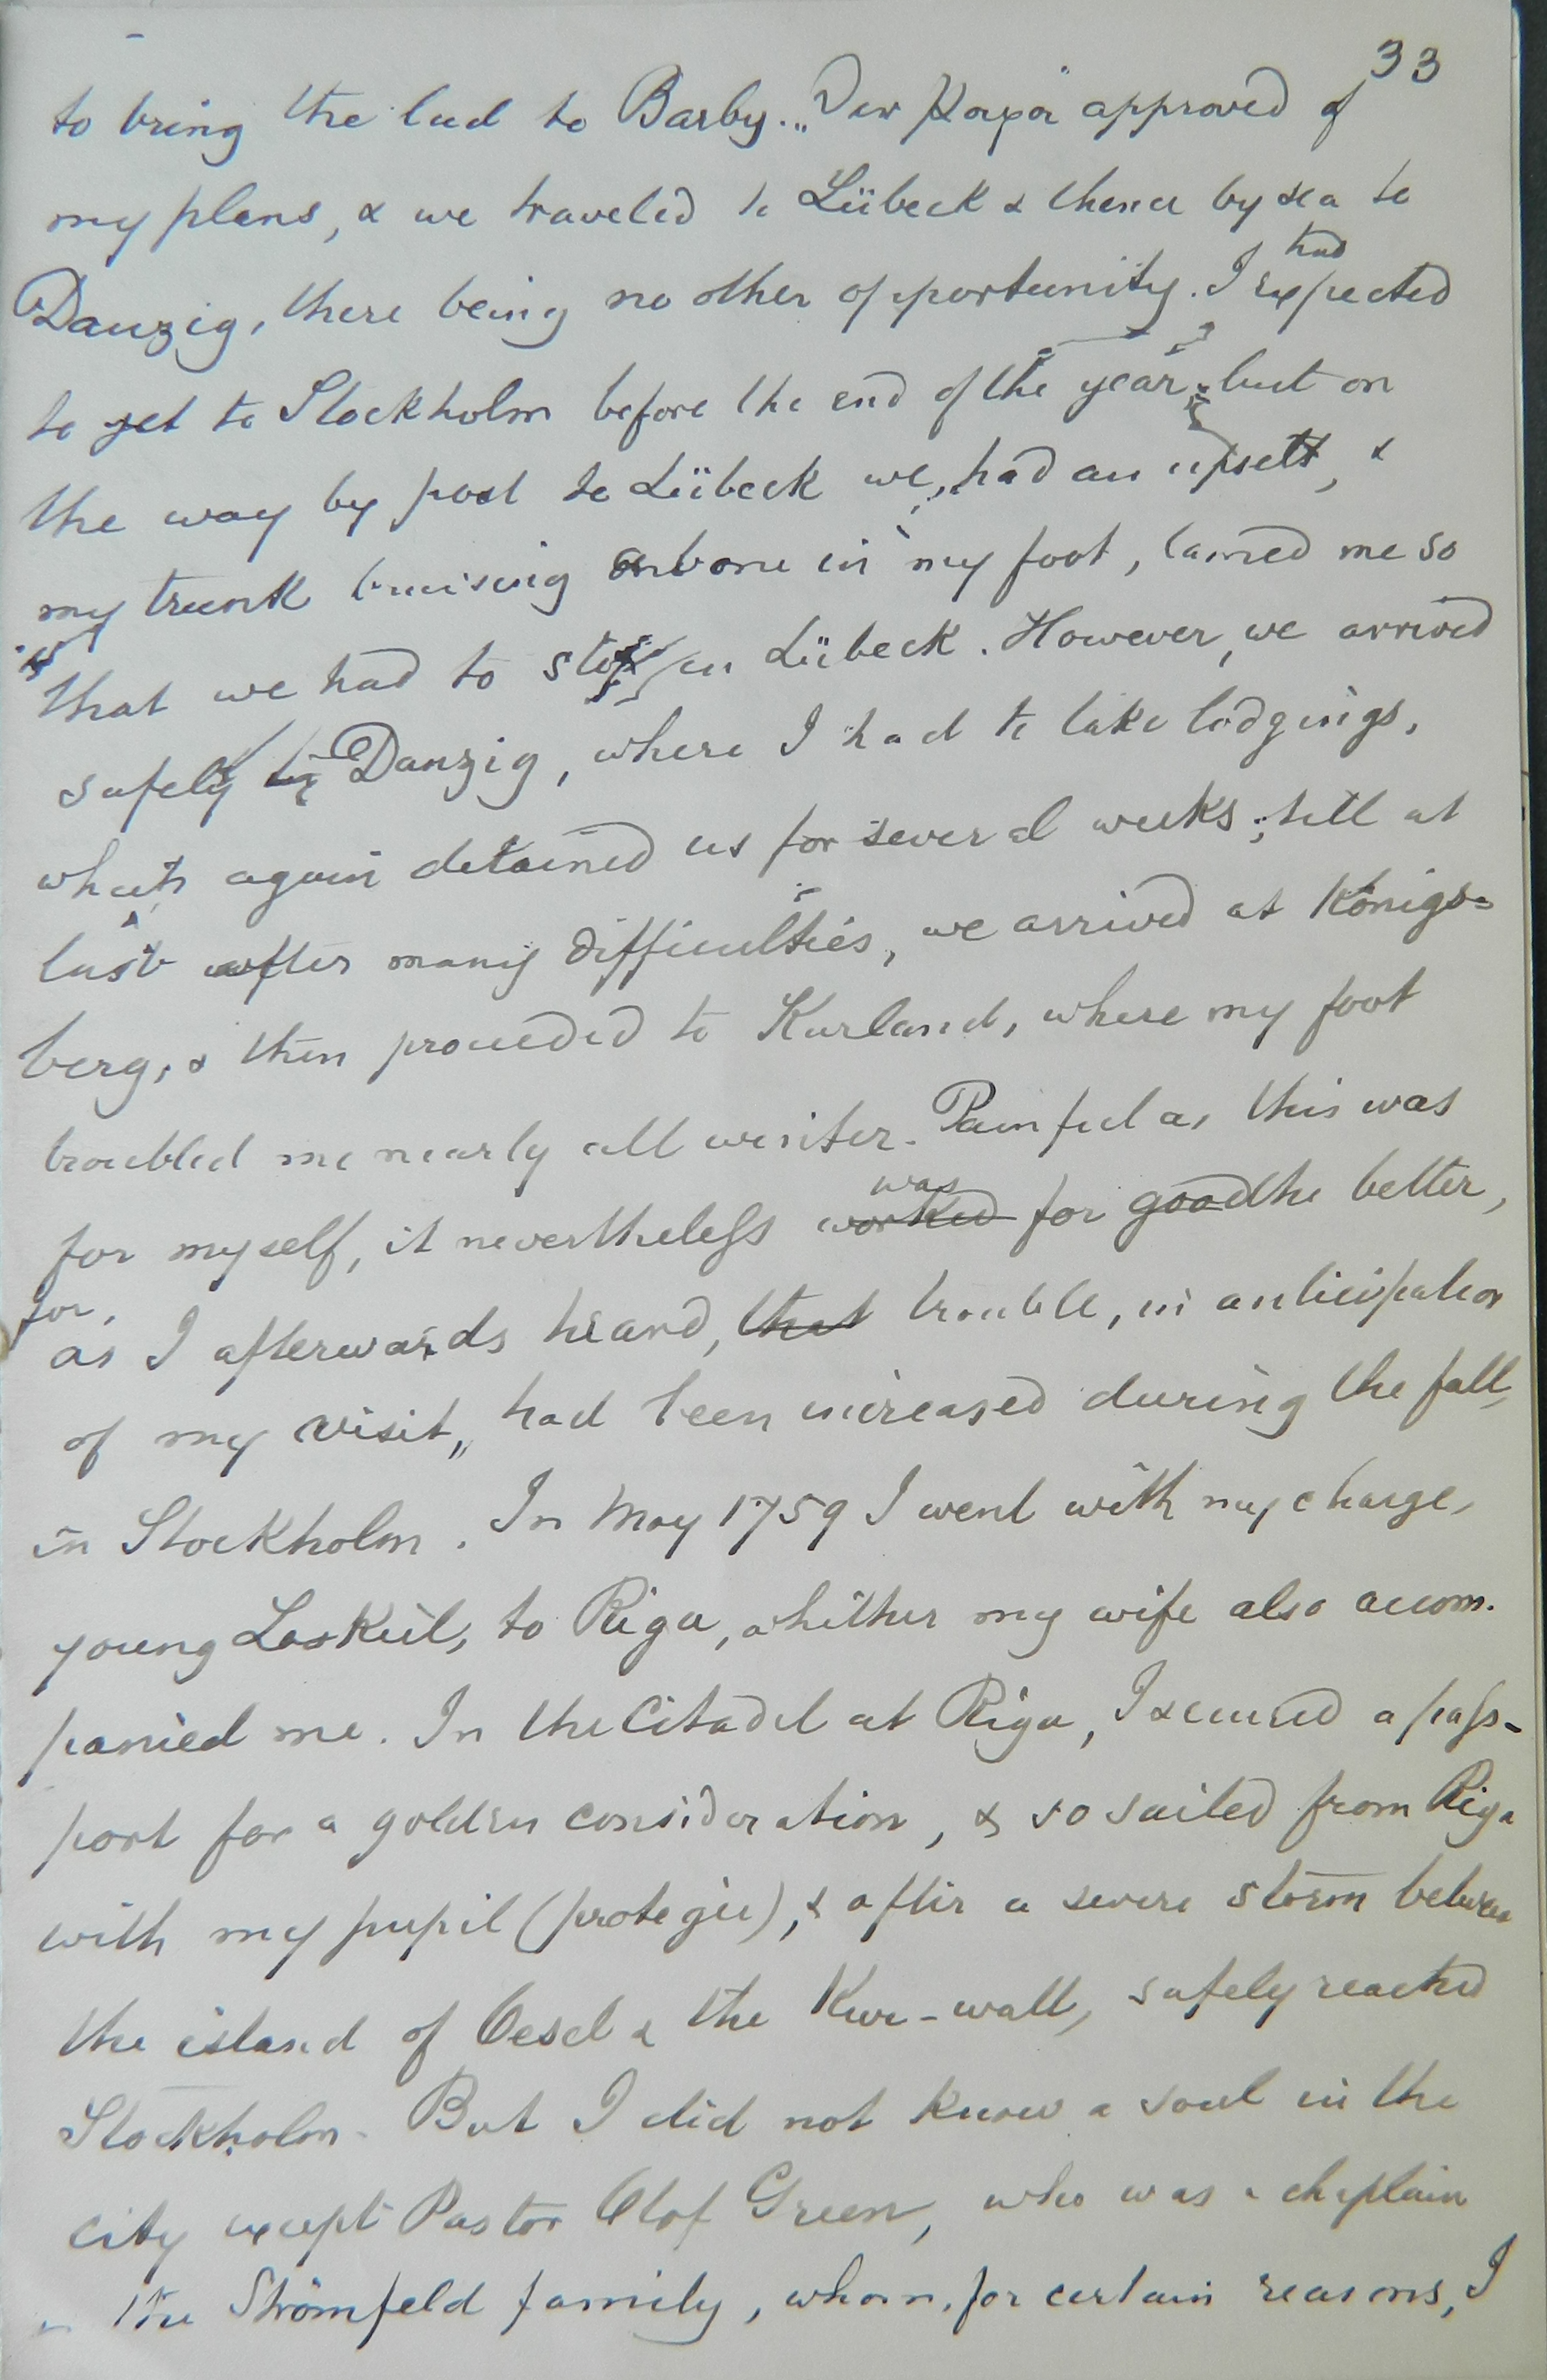 33
to bring the lad to Barby. „Der Papa approved of
my plans, & we traveled to Lübeck & thence by sea to
Danzig, there being no other opportunity. I had expected
to get to Stockholm before the end of the year, but on
the way by post to Lübeck we, had an upsett, &
my trunk bruising a bone in my foot, lamed me so
that we had to stop in Lübeck. However, we arrived
safely in Danzig, where I had to take lodgings,
what again detained us for several weeks; till at
last after many difficulties, we arrived at Königs=
berg, & then proceeded to Kurland, where my foot
troubled me nearly all winter. Painful as this was
for myself, it nevertheless worked was for good the better,
for, as I afterwards heard, that trouble, in anticipation
of my visit,, had been increased during the fall,
in Stockholm. In May 1759 I went with my charge,
young Loskiel, to Riga, whither my wife also accom-
panied me. In the Citadel at Riga, I secured a pass-
port for a golden consideration, & so sailed from Riga
with my pupil (protegie), & after a severe storm between
the island of Oesel & the Kur-wall, safely reached
Stockholm. But I did not know a soul in the
city except Pastor Olof Green, who was a chaplain
in the Strömfeld family, whom, for certain reasons, I